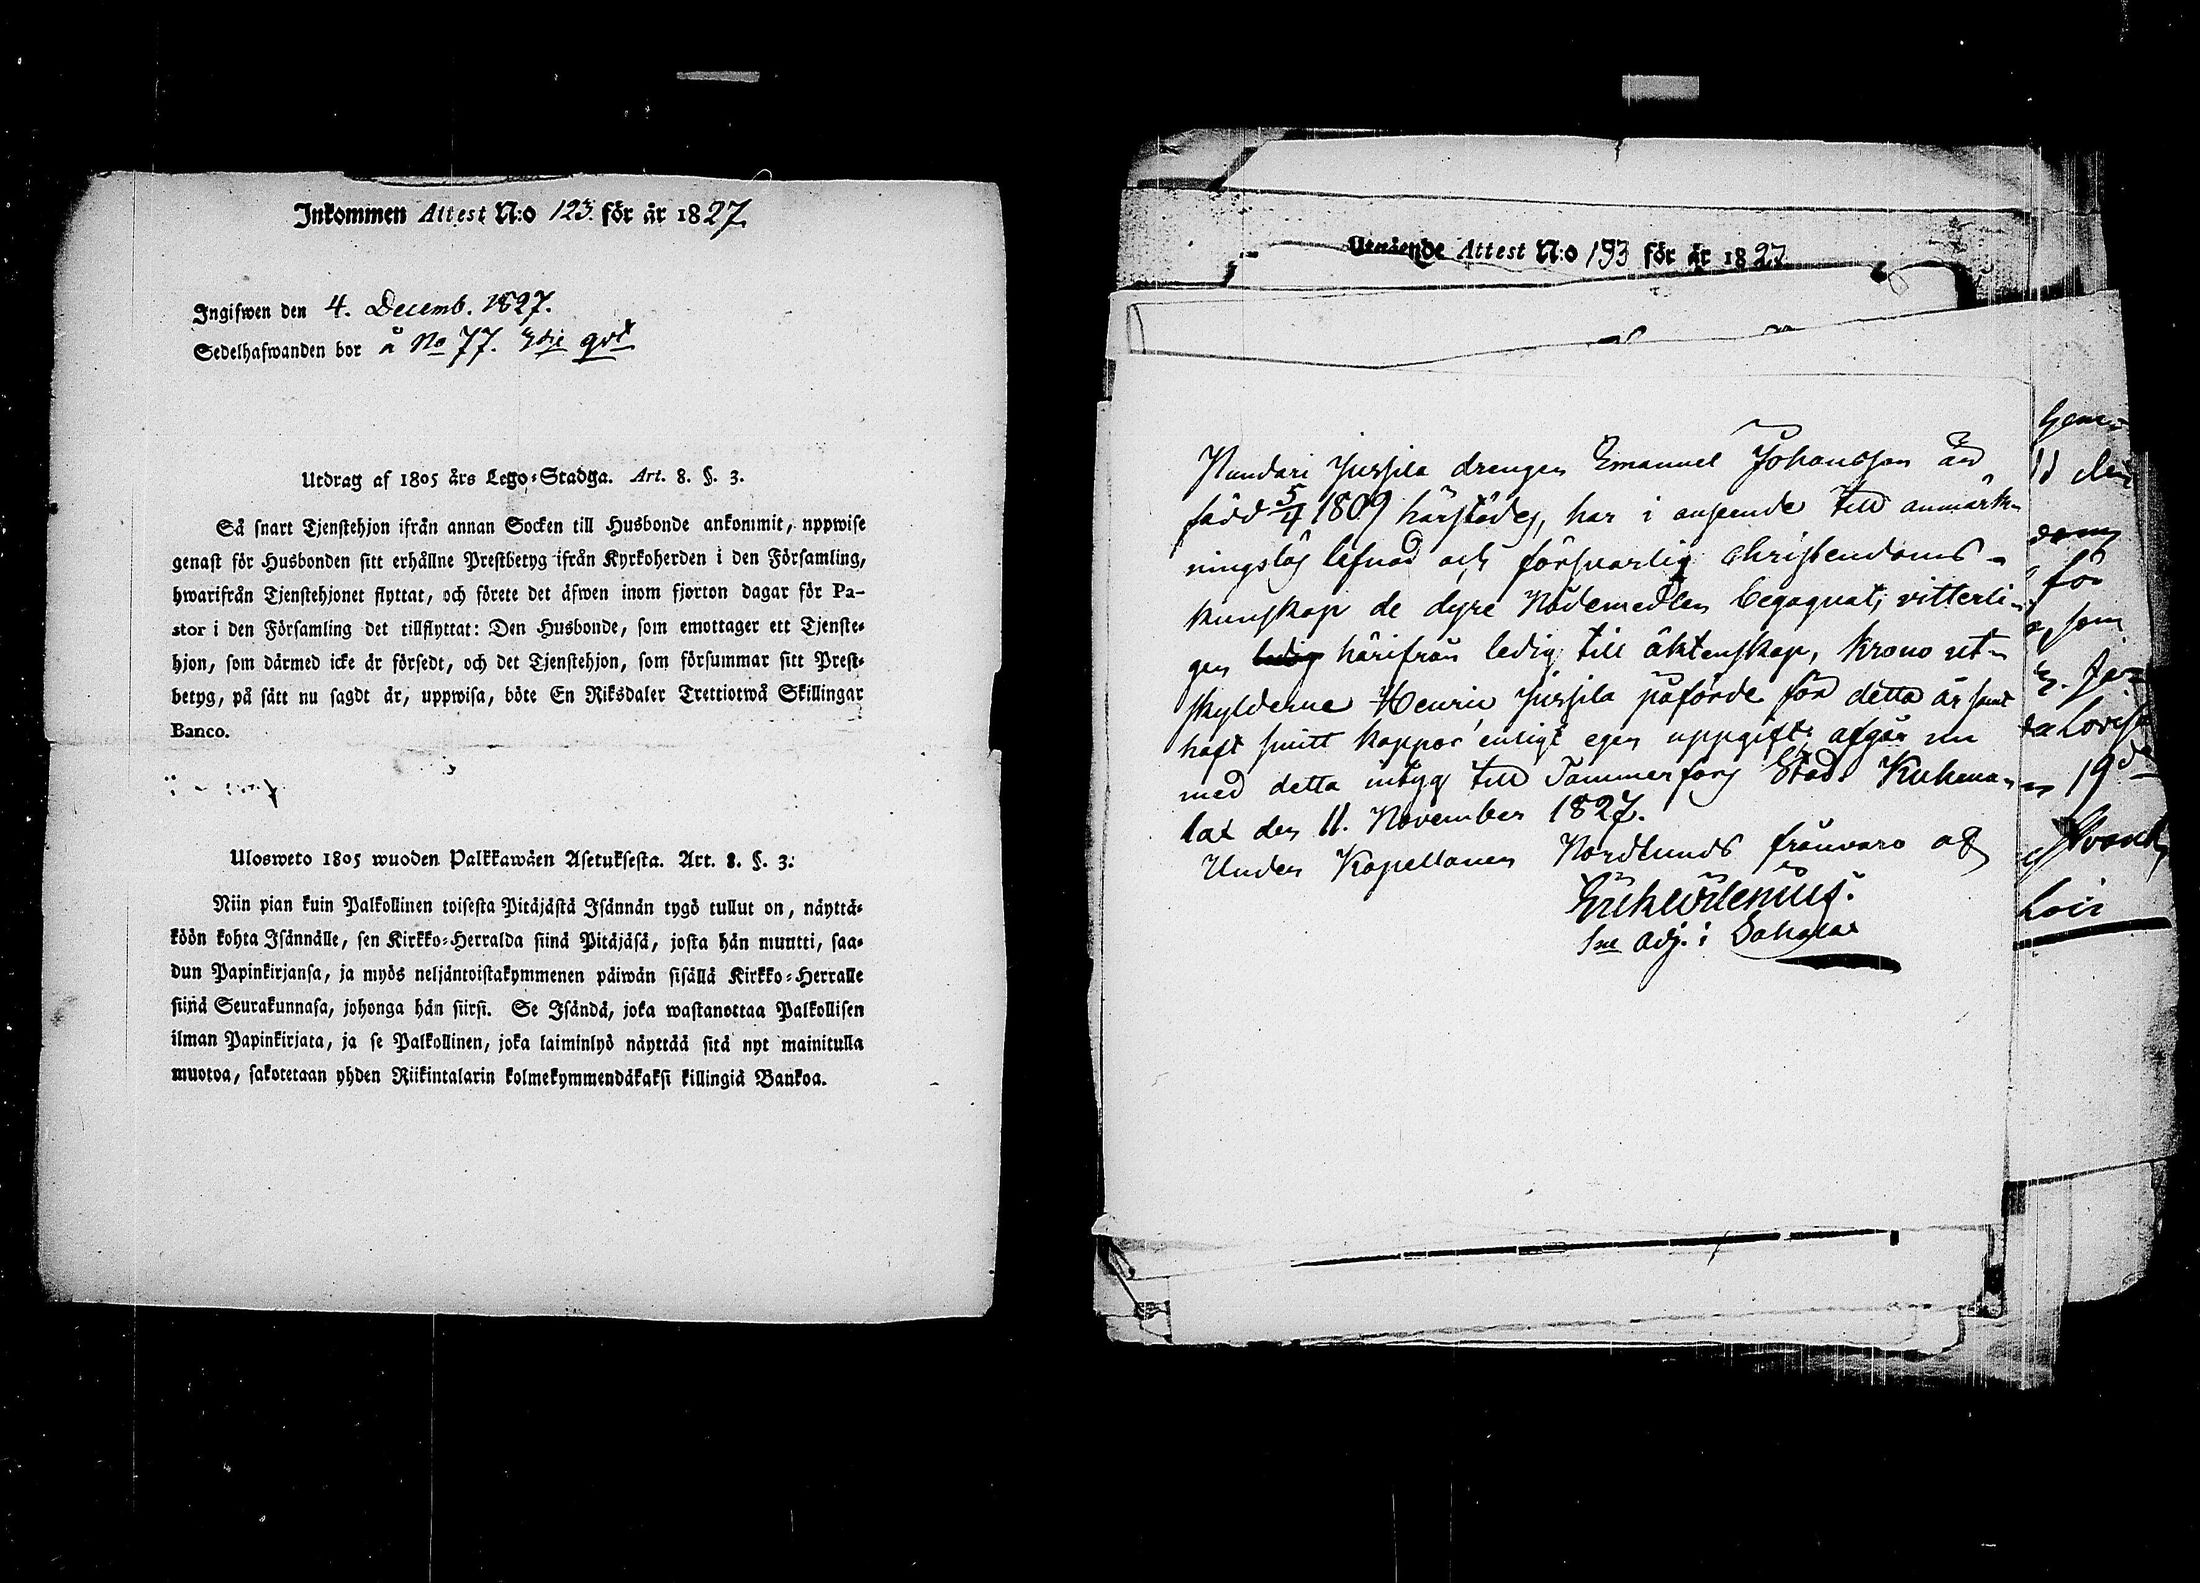 Inkommen Attest N:o 123. för år 1827.
Ingifwen den 4. Decemb. 1827.
Sedelhafwanden bor å No 77. 3dje qvt
Utdrag af 1805 års Lego-Stadga. Art. 8. §. 3.
Så snart Tjenstehjon ifrån annan Socken till Husbonde ankommit, uppwise
genast för Husbonden sitt erhållne Prestbetyg ifrån Kyrkoherden i den Församling,
hwarifrån Tjenstehjonet flyttat, och förete det äfwen inom fjorton dagar för Pa-
stor i den Församling det tillflyttat: Den Husbonde, som emottager ett Tjenste-
hjon, som därmed icke är försedt, och det Tjenstehjon, som försummar sitt Prest-
betyg, på sätt nu sagdt är, uppwisa, böte En Riksdaler Trettiotwå Skillingar
Banco.
Ulosweto 1805 wuoden Palkkawäen Asetuksesta. Art. 8. §. 3.
Niin pian kuin Palkollinen toisesta Pitäjästä Isännän tygö tullut on, näyttä-
köön kohta Isännälle, sen Kirkko-Herralda siinä Pitäjäsä, josta hän muutti, saa-
dun Papinkirjansa, ja myös neljäntoistakymmenen päiwän sisällä Kirkko-Herralle
siinä Seurakunnasa, johonga hän siirsi. Se Isändä, joka wastanottaa Palkollisen
ilman Papinkirjata, ja se Palkollinen, joka laiminlyö näyttää sitä nyt mainitulla
muotoa, sakotetaan yhden Riikintalarin kolmekymmendäkaksi killingiä Bankoa.
Utgående Attest N:o 193 för år 1827
Nundari Jussila drengen Emanuel Johansson är
född 5/4 1809 härstädes, har i anseende till anmärk-
ningslös lefnad och försvarlig Christendoms-
kunskap de dyre Nådemedlen begagnat, vitterli-
gen härifrån ledig till äktenskap, Krono ut-
skylderne Henric Jussila påförde för detta år samt
haft smitt koppor enligt egen uppgift, afgår nu
med detta intyg till Tammerfors Stad. Kuhma-
lax den 11. November 1827.
Under Kapellanen Nordlunds frånvaro af
Erik
Sne Adj. i Sahalax
11 den
för
som
19de